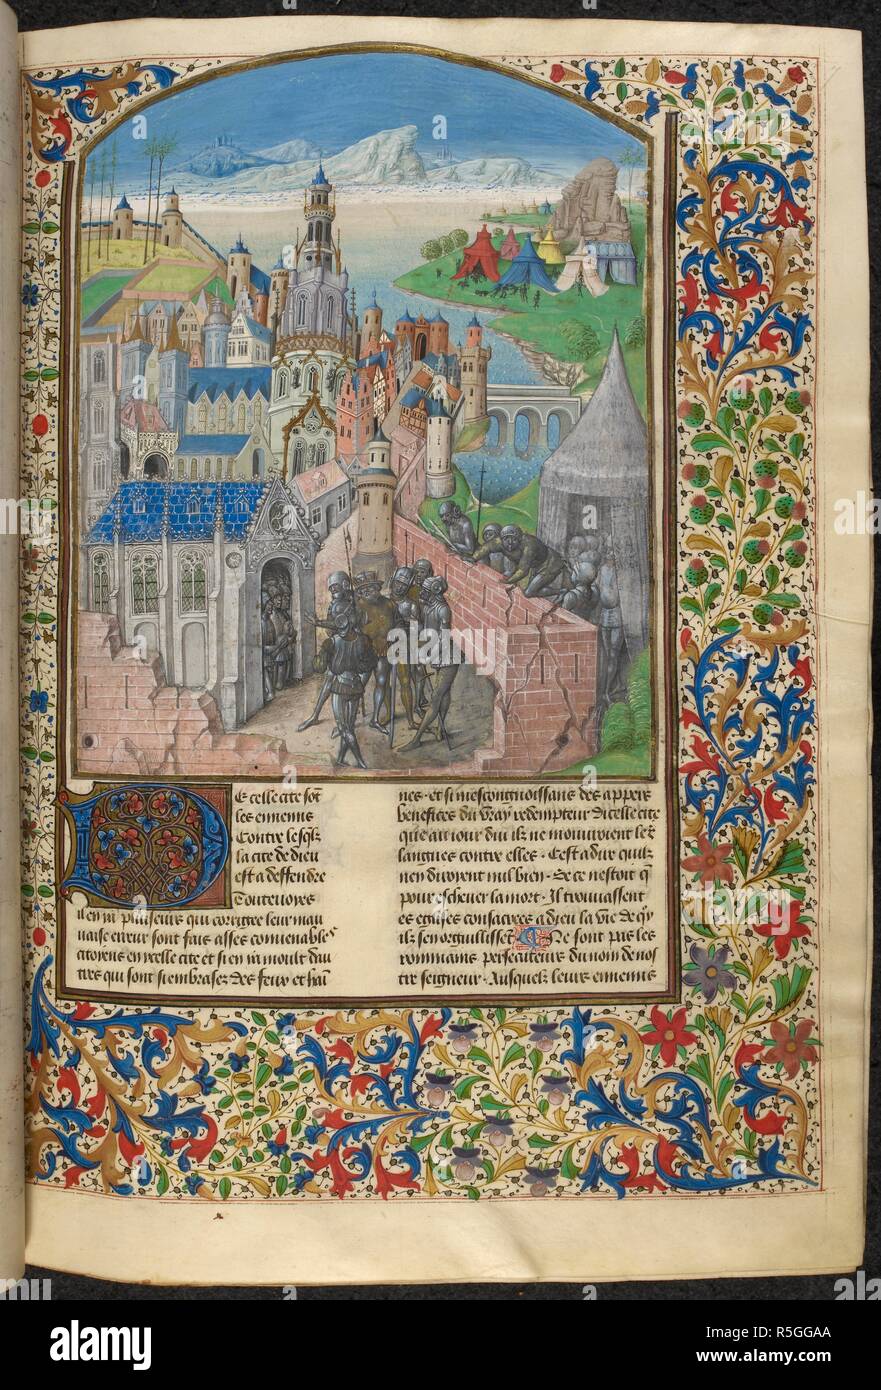 De celle cite sõt
les ennemis
Contre lesqlz
la cite de dieu
est a deffendre
Toutevoies
il en ya pluiseurs qui corrigie leur mau
vaise erreur sont fais asses convenables
citoyens en ycelle cite et si en ya moult dau
tres qui sont si embrasez des feux et hai
nes . et si mescongnoissans des appers
benefices du vray redempteur dicelle cite
que au jour dui ilz ne mouvroient leurs
langues contre elles . Cest a dire quilz
nen diroient nul bien . Se ce nestoit q̃
pour eschever la mort . Il trouvassent
es eglises consacrees a dieu la vie de quoy
ilz senorguillissent Ne sont pas les
rommains persecuteurs du nom de nos
tre seigneur . Ausquelz leurs ennemis
alamy
Image ID: R5GGAA
www.alamy.com